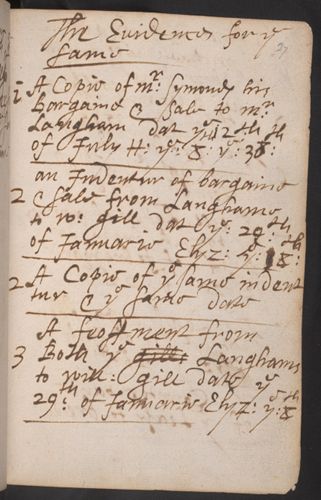 The Evidences for yͤ
same
1 A Copie of mr: Symonds his
bargaine & sale to mr:
Langham dat yͤ 12th
of July H: yͤ: 8: yͤ: 38:th
an Indentur of bargaine
2 & sale from Langhams
to w: gill dat yͤ: 29:th
of Januarie Elyz: yͤ: 18:th
2 A Copie of yͤ same indent
ure & yͤ same date
A feoffment from
3 Both yͤ gill: Langhams
to will: gill date yͤ
29:th of Januarie Elyz: yͤ: 18